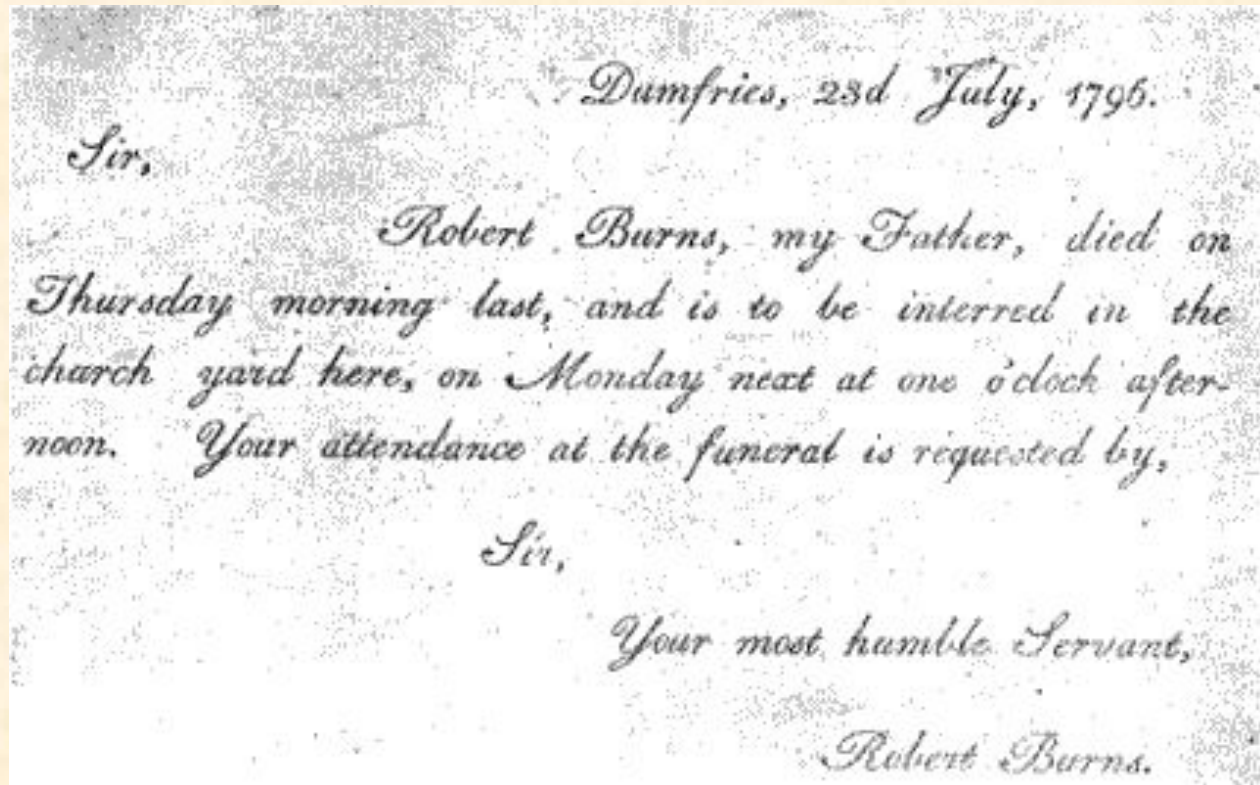 Dumfries, 23d July, 1796.
Sir,
Robert Burns, my Father, died on
Thursday morning last, and is to be interred in the
church yard here, on Monday next at one o'clock after-
noon. Your attendance at the funeral is requested by,
Sir,
Your most humble Servant,
Robert Burns.